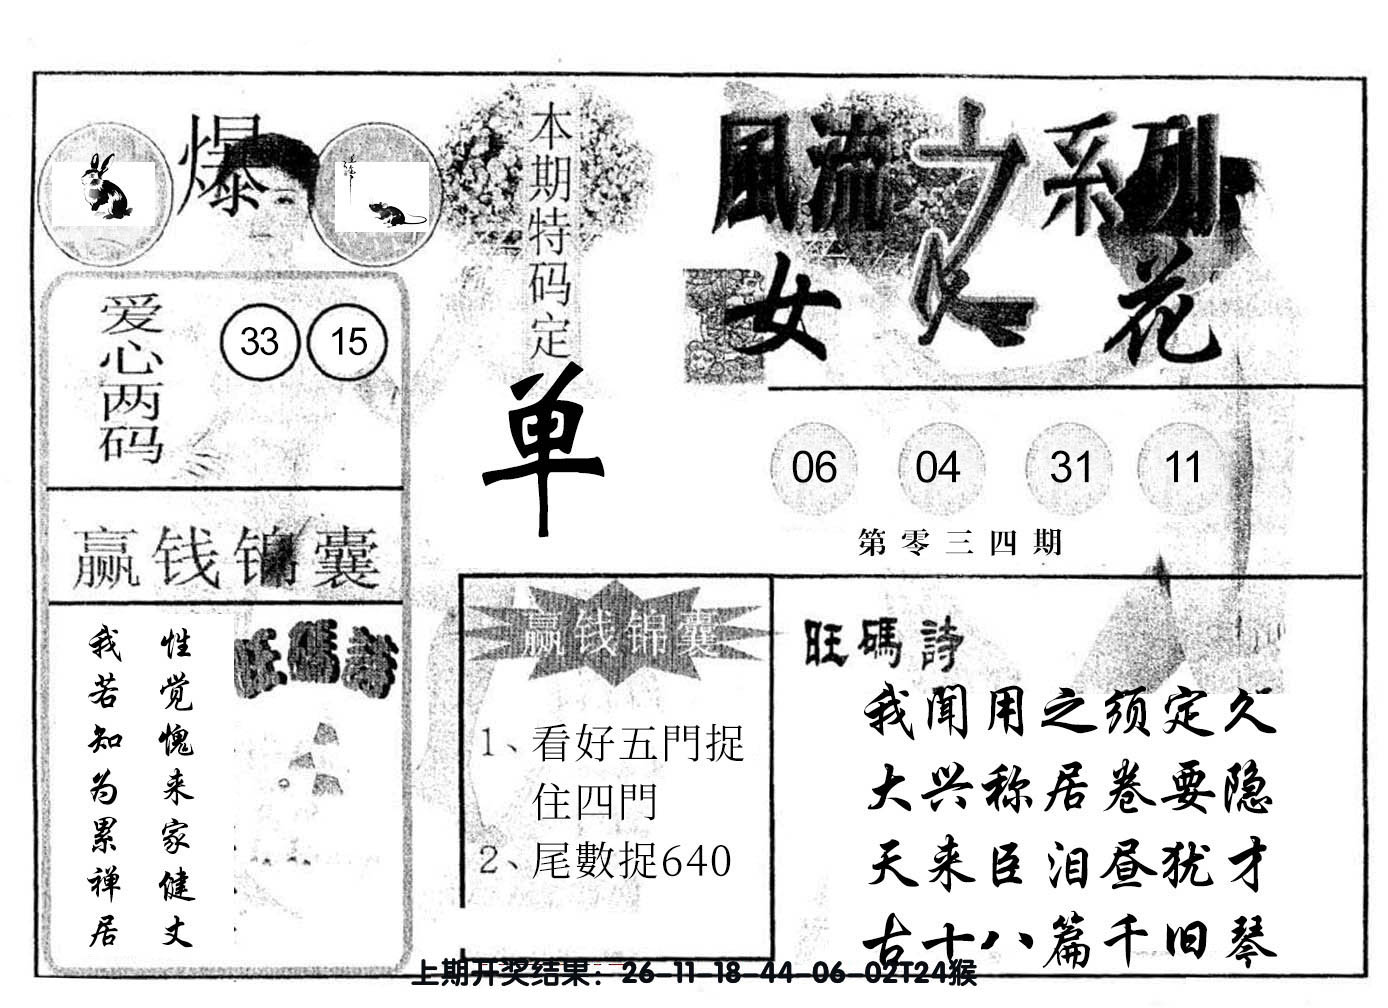 爆
本期特码定
单
風流之系列
女人花
爱心两码
33 15
06 04 31 11
第零三四期
赢钱锦囊
性觉愧来家健丈
我若知为累禅居
旺碼詩
赢钱锦囊
1、看好五門捉
住四門
2、尾數捉640
旺碼詩
我闻用之须定久
大兴称居卷要隐
天来臣泪昼犹才
古十八篇千旧琴
上期开奖结果：26-11-18-44-06-02T24猴